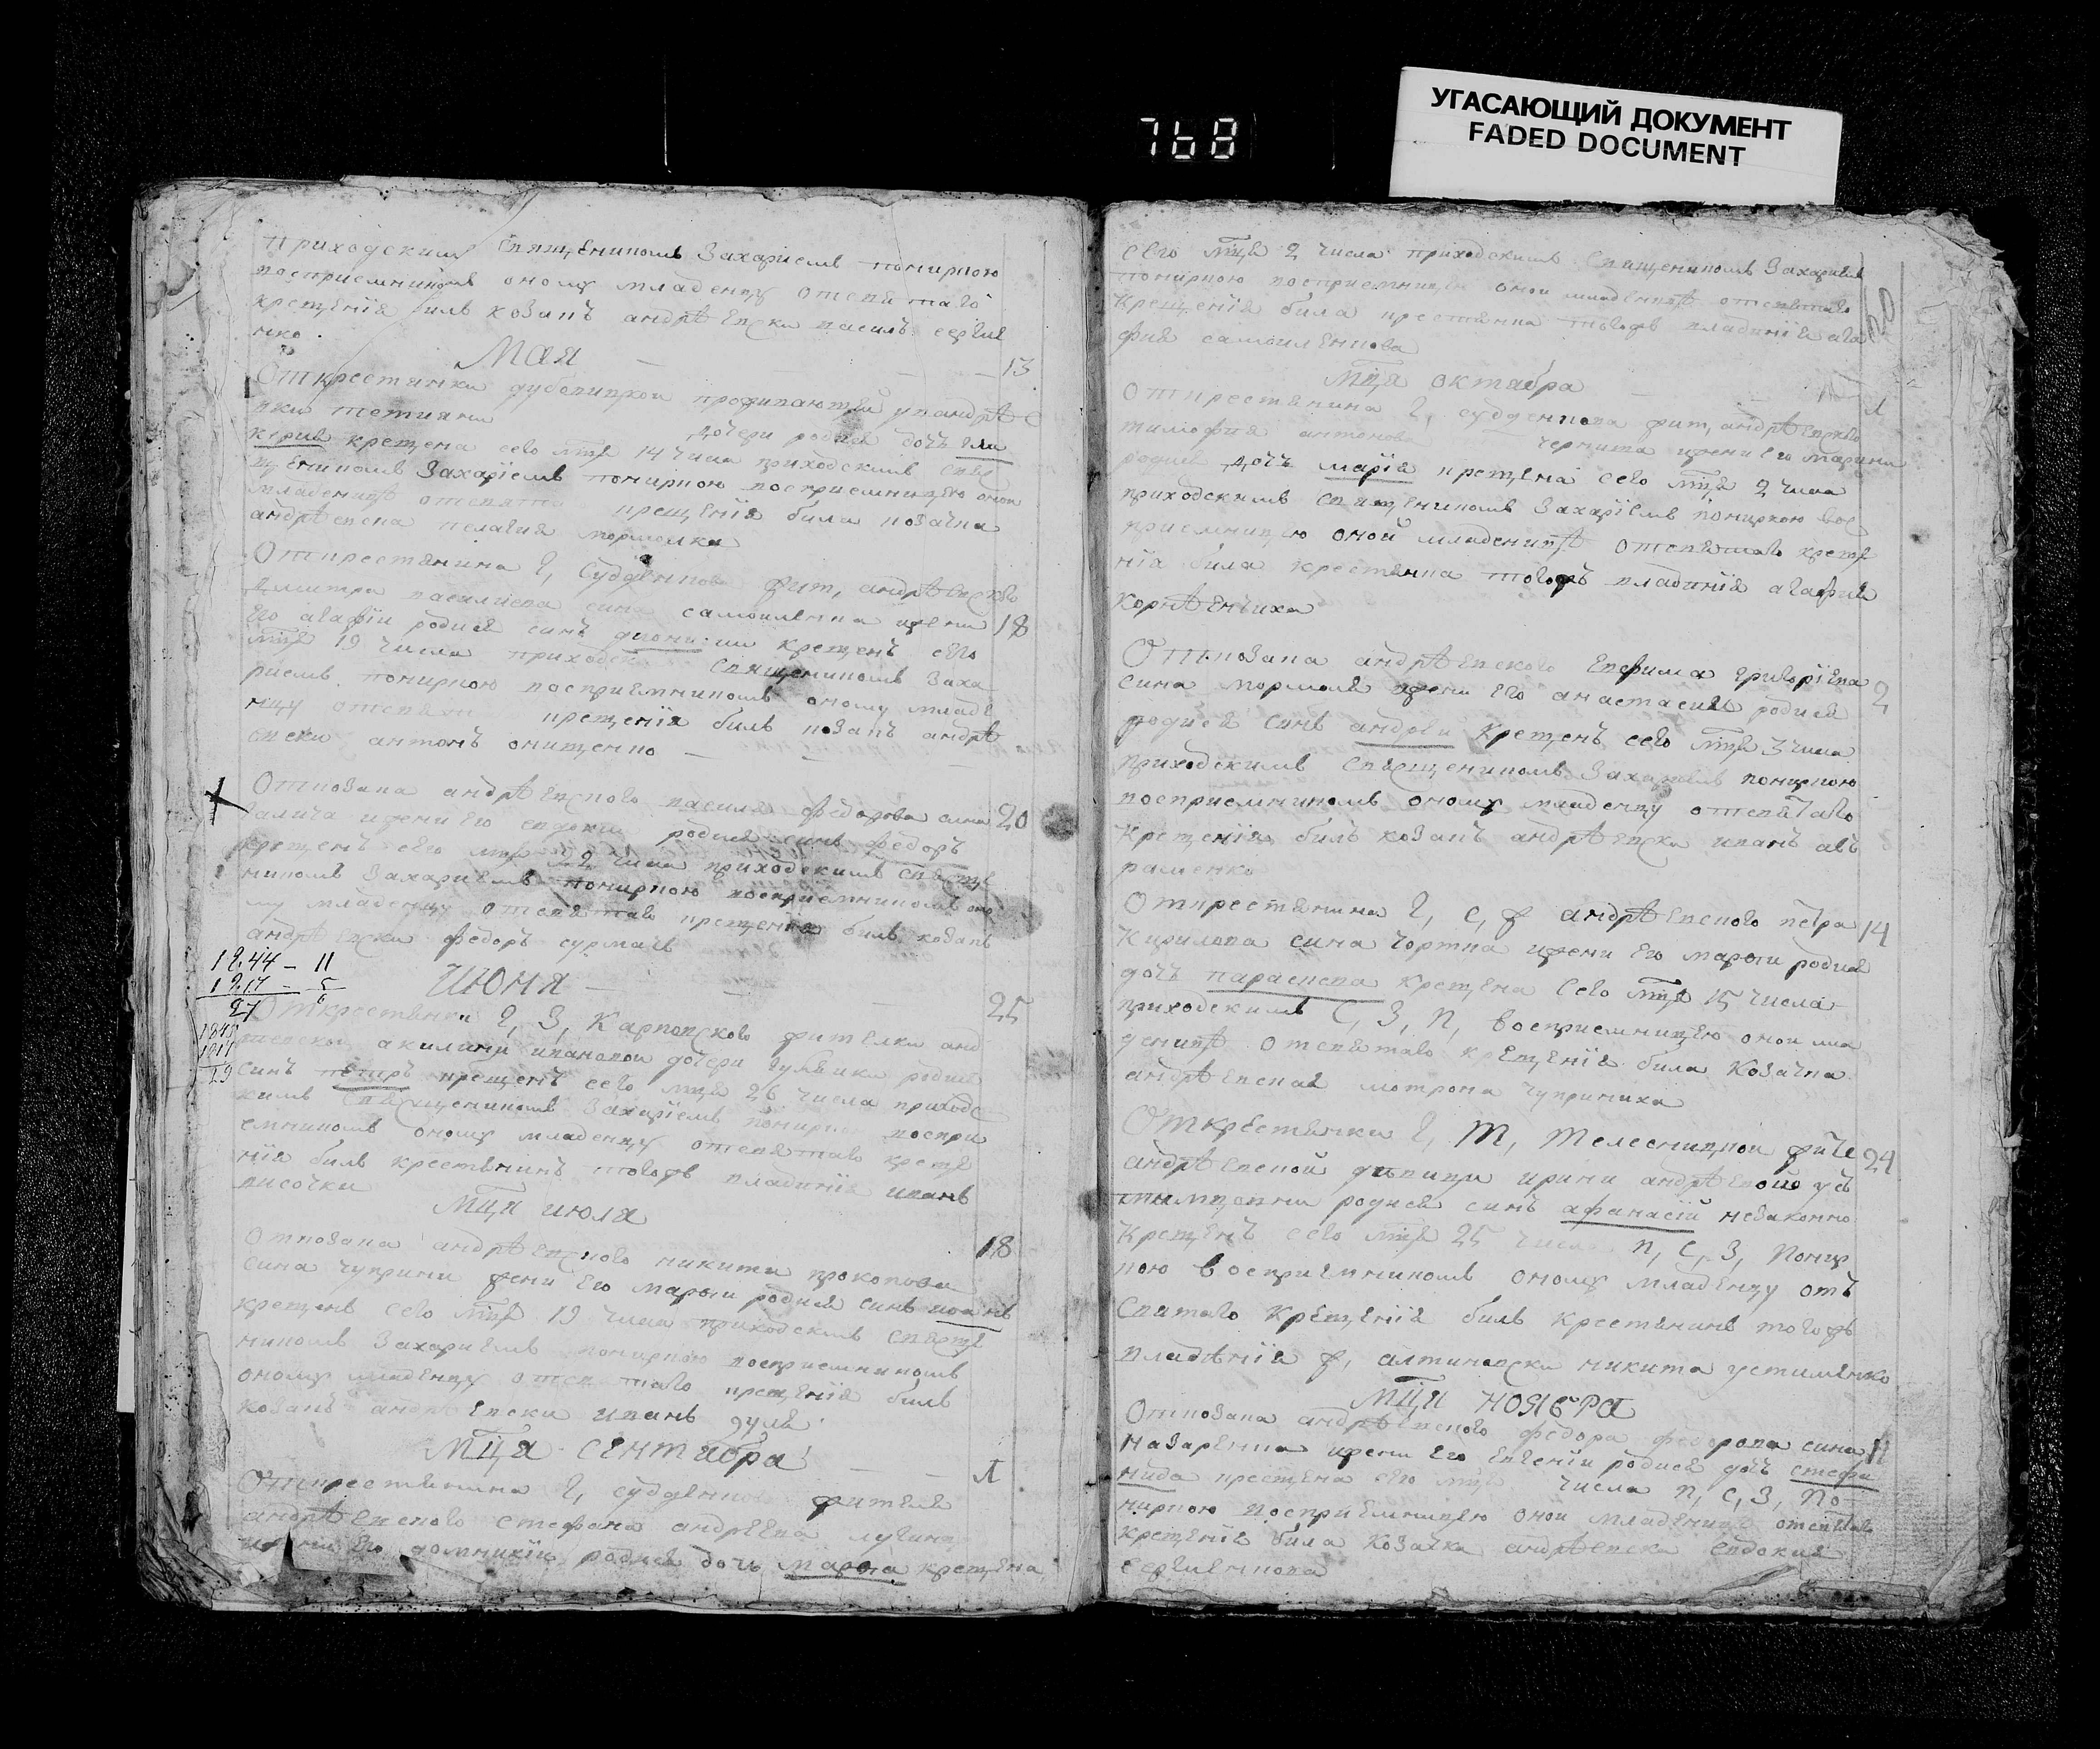 768
УГАСАЮЩИЙ ДОКУМЕНТ
FADED DOCUMENT
приходским священником Захариемъ пониркою
восприемником оному младенцу отсвятаго
крещения билъ козакъ андрѣевски василь сергие
нко.
Мая 13
От крестянки дубовицкой проживающей уъ андрѣе
вки тетияни дочери родися дочъ гли
керия крещена сего мца 14 числа приходскимъ свяс
щеникомъ Захариемъ пониркою восприемницею оной
младеницѣ отсвята крещения била козачка
андрѣевска пелагия
От крестянина г, Судденкова жит, андрѣевского
дмитра василиева сина самоиленка жени 18
его агафии родися синъ дионисии крещенъ сего
мца 19 числа приходск священикомъ Заха
риемъ пониркою восприемникомъ оному младе
нцу отсвят крещения билъ козакъ андрѣ
евски антонъ онищенко
От козака андрѣевского василя федорова сина 20
галича жени его евдокии родися синъ федоръ
крещенъ сего мца 22 числа приходскимъ свясще
никомъ Захариемъ пониркою восприемникомъ оно
му младенцу отсвятаго крещения билъ козакъ
андрѣевски федоръ сурмачъ
1844 - 11
1817 - 5
27 6
Июня 25
От крестянки г, З, Карповского жителки анд
реевской акилини ивановой дочери родися
синъ петръ крещенъ сего мца 26 числа приходс
кимъ свясщеникомъ Захариемъ понирк воспри
емникомъ оному младенцу отсвятаго креще
ния билъ крестянинъ тогожъ владиния иванъ
височки
1845
1817
29
Мца июля
От козака андрѣевского никити прокопова 18
сина чуприни жени его марфи родися синъ иоанъ
крещенъ сего мца 19 числа приходскимъ свясще
никомъ Захариемъ пониркою восприемникомъ
оному младенцу отсв таго крещения билъ
козакъ андрѣевски иванъ дуля
Мца сентиабра Л
От крестянина г, судденко жителя
андрѣевского стефана андреева
жени его домникии родися дочь марфа крещена
60
сего мца 2 числа приходскимъ священикомъ Захариемъ
пониркою восприемницею оной младеницѣ отсвятаго
крещения била крестянка тогожъ владиния ага
фия самоиленкова
Мца октиабра Л
От крестянина г, судденкова жит, андрѣевского
тимофия антонова черниша жени его марини
родися дочъ мария крещена сего мца 2 числа
приходскимъ священикомъ Захариемъ пониркою вос
приемницею оной младеницѣ отсвятаго креще
ния била крестянка тогожъ владиния агафия
корнѣенъчиха
От козака андрѣевского евфима григориева 2
сина мормоля жени его анастасии родися
родися синъ андреи крещенъ сего мца 3 числа
приходскимъ свясщеникомъ Захариемъ пониркою
восприемникомъ оному младенцу отсвятаго
крещения билъ козакъ андрѣевски иванъ авъ
раменко
От крестянина г, с, ж андрѣевского петра 14
кирилова сина чортка жени его марфи родися
дочъ параскева крещена сего мца 15 числа
приходскимъ С, З, п, восприемницею оной мла
деницѣ отсвятаго крещения била козачка
андрѣевская мотрона чуприниха
От крестянки г, т, телесницкой жите 24
андрѣевской дивици ирини андрѣевой ус
тимценки родися синъ афанасии незаконно
крещенъ сего мца 25 числа п, С, З, понир
кою восприемникомъ оному младенцу отъ
святаго крещения билъ крестянинъ тогожъ
владѣния ж, алтиновски никита устименко
мца ноябра
От козака андрѣевского федора федорова сина 11
назаренка жени его евгении родися дочъ стефа
нида крещена сего мца числа п, с, З, по
ниркою восприемницею оной младеницѣ отсвятаго
крещения била козачка андрѣевска евдокия
сергиенкова